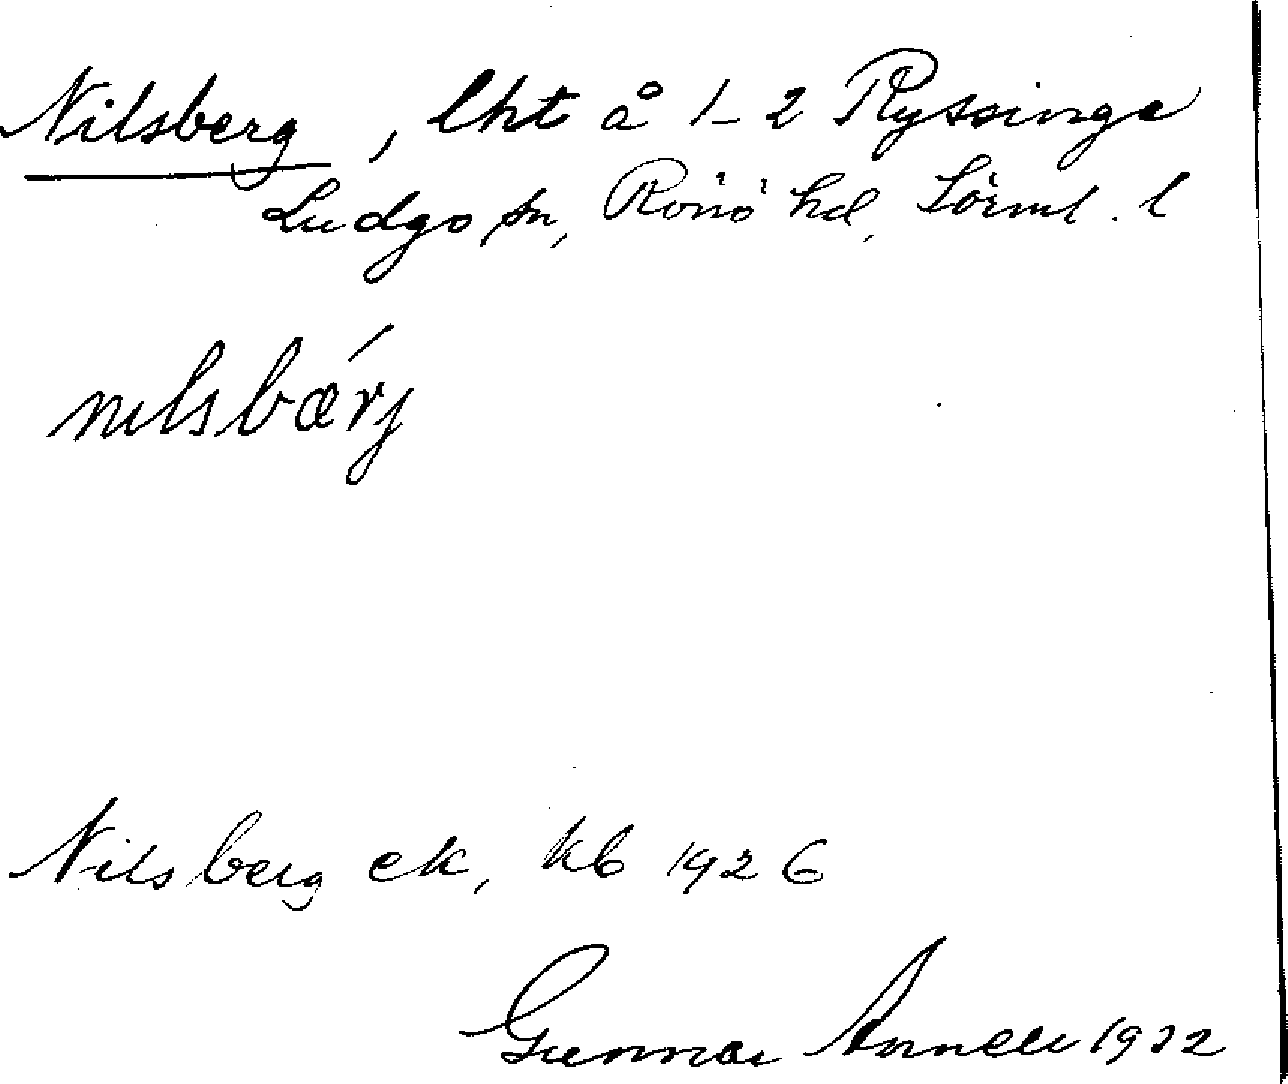 Nilsberg, lht å 1-2 Ryssinge
Ludgo sn, Rönö hd, Sörml. l
nɩlsbærj
Nilsberg ek, kb 1926
Gunnar 1932